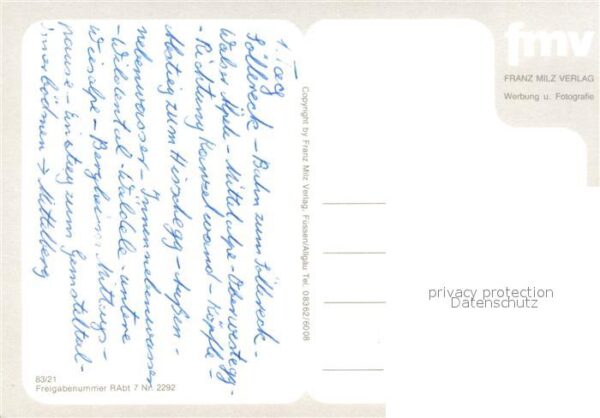 1. Tag
Söllereck - Bahn zum Söllereck -
Walser Alpele - Mittelalpe - Oberwestegg -
- Richtung Kanzelwand - Köpfle -
Abstieg zum Hirschegg - Außen-
nebenwasser - Innernebenwasser
- Wildental - untere
Wiesalpe - Bergheim Mittags-
pause - Einstieg zum Gemsteltal -
Innerbödmen → Mittelberg
Copyright by Franz Milz Verlag, Füssen/Allgäu Tel. 08362/6008
fmv
FRANZ MILZ VERLAG
Werbung u. Fotografie
privacy protection
Datenschutz
83/21
Freigabenummer RAbt 7 Nr. 2292